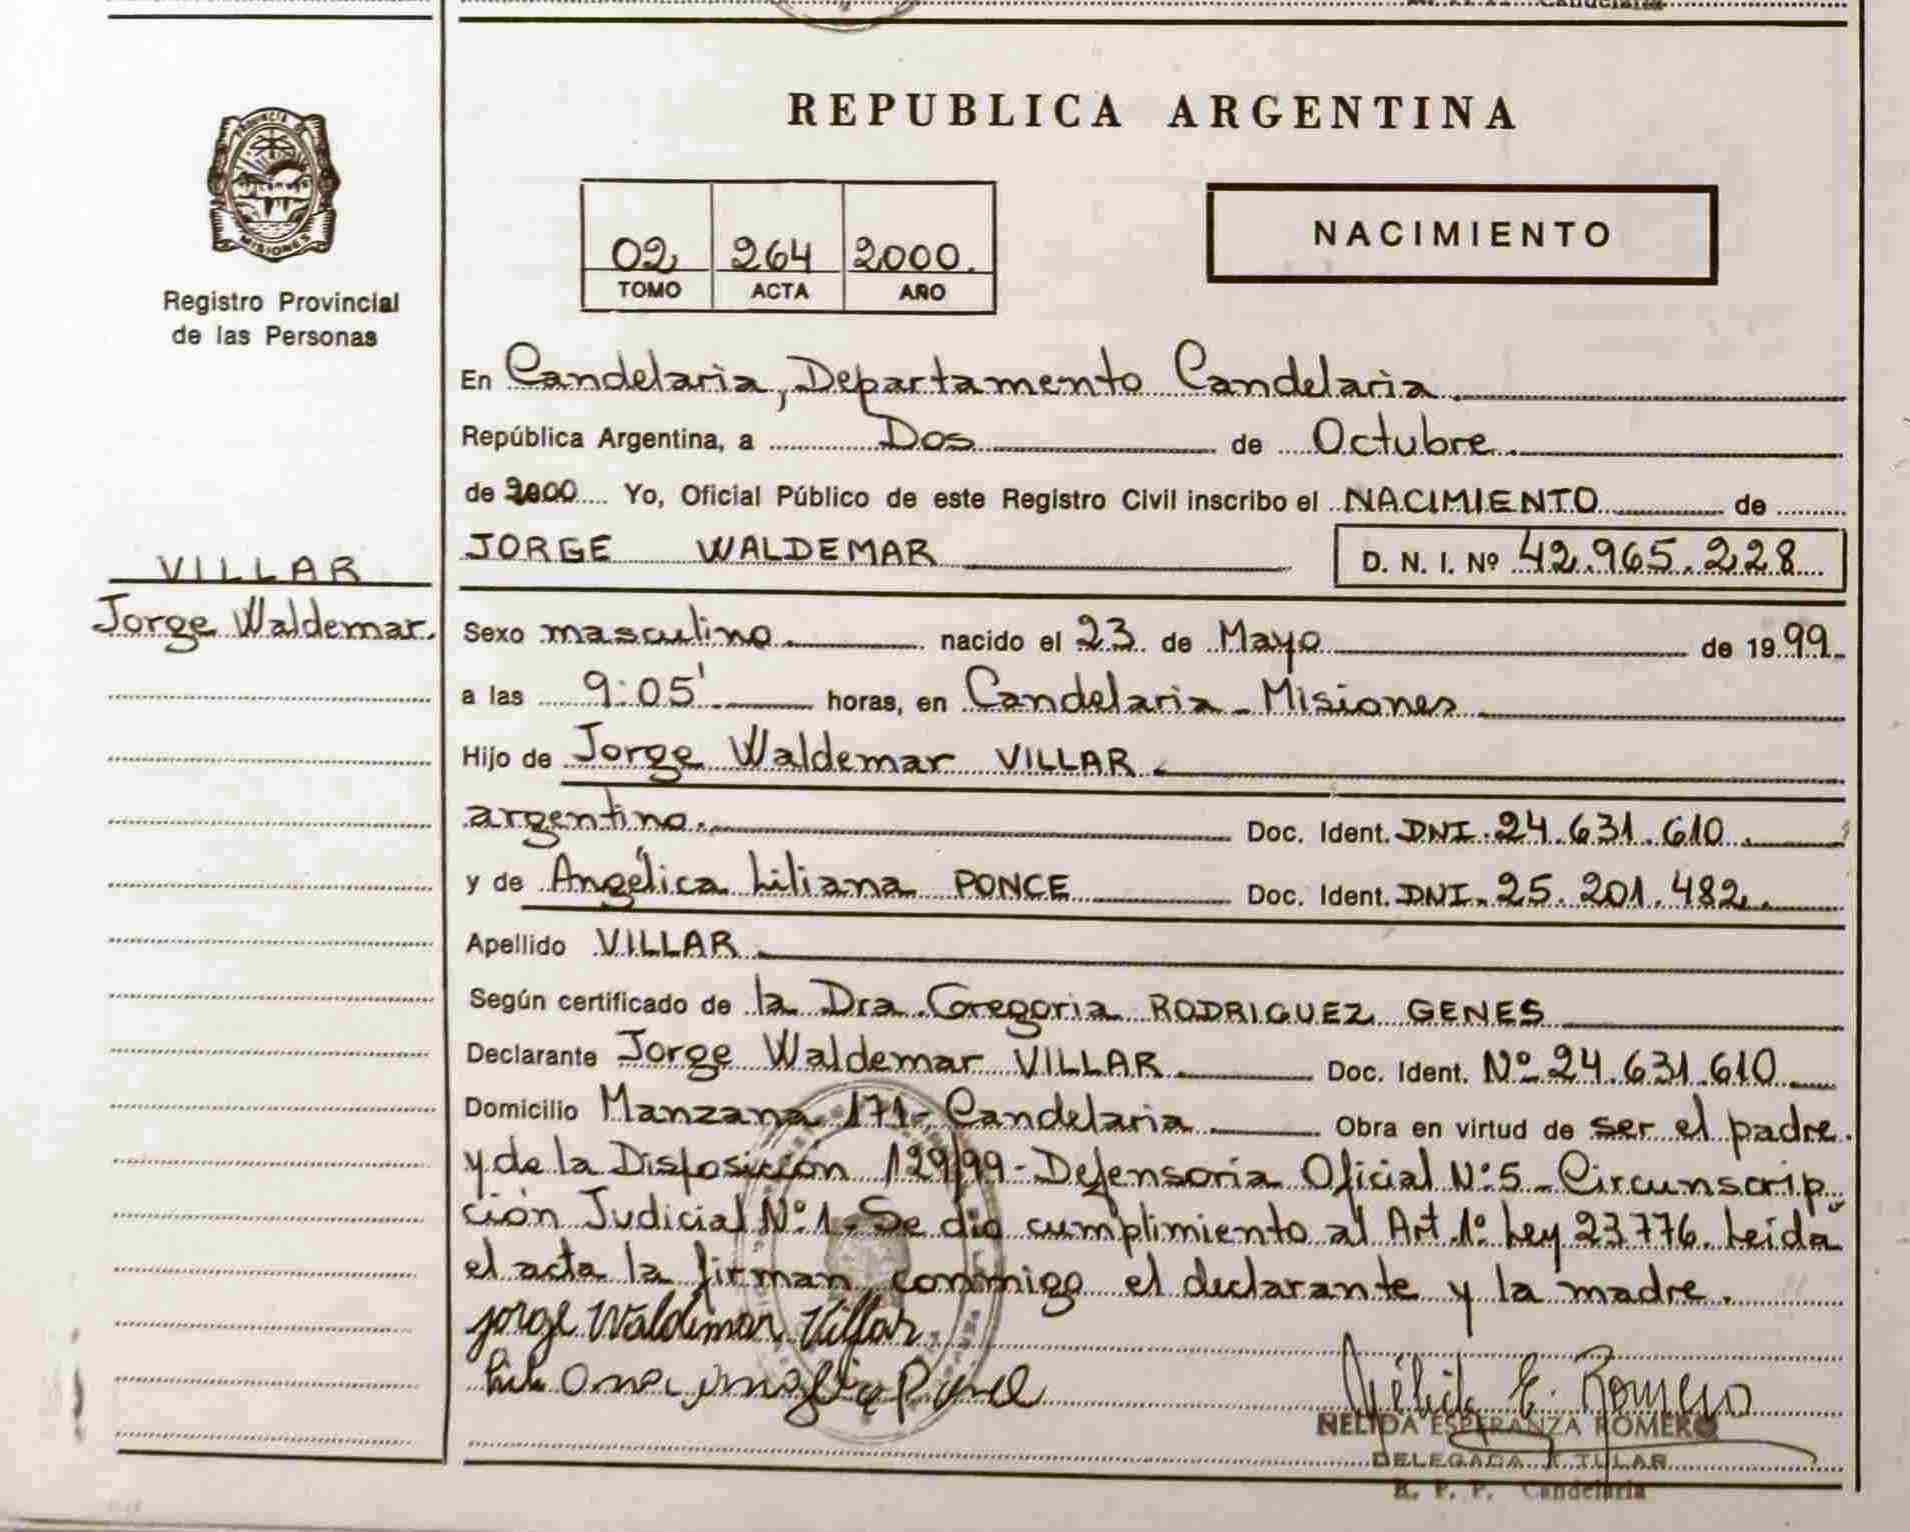 Candelaria
REPUBLICA ARGENTINA
PROVINCIA DE
MISIONES
Registro Provincial
de las Personas
02 264 2000.
TOMO ACTA AÑO
NACIMIENTO
En Candelaria, Departamento Candelaria
República Argentina, a Dos de Octubre
de 2000 Yo, Oficial Público de este Registro Civil inscribo el NACIMIENTO de
JORGE WALDEMAR D. N. I. Nº 42.965.228
VILLAR
Jorge Waldemar.
Sexo masculino. nacido el 23 de Mayo de 1999
a las 9:05' horas, en Candelaria - Misiones
Hijo de Jorge Waldemar VILLAR
argentino. Doc. Ident. DNI. 24.631.610
y de Angélica Liliana PONCE Doc. Ident. DNI. 25.201.482.
Apellido VILLAR
Según certificado de la Dra. Gregoria RODRIGUEZ GENES
Declarante Jorge Waldemar VILLAR Doc. Ident. Nº 24.631.610
Domicilio Manzana 171- Candelaria Obra en virtud de ser el padre
y de la Disposición 129/99 - Defensoría Oficial Nº 5 - Circunscrip
ción Judicial Nº 1 - Se dio cumplimiento al Art. 1º Ley 23776. Leída
el acta la firman conmigo el declarante y la madre.
Jorge Waldemar Villar
Nélida E. Romero
NELIDA ESPERANZA ROMERO
DELEGADA TITULAR
R. P. P. Candelaria